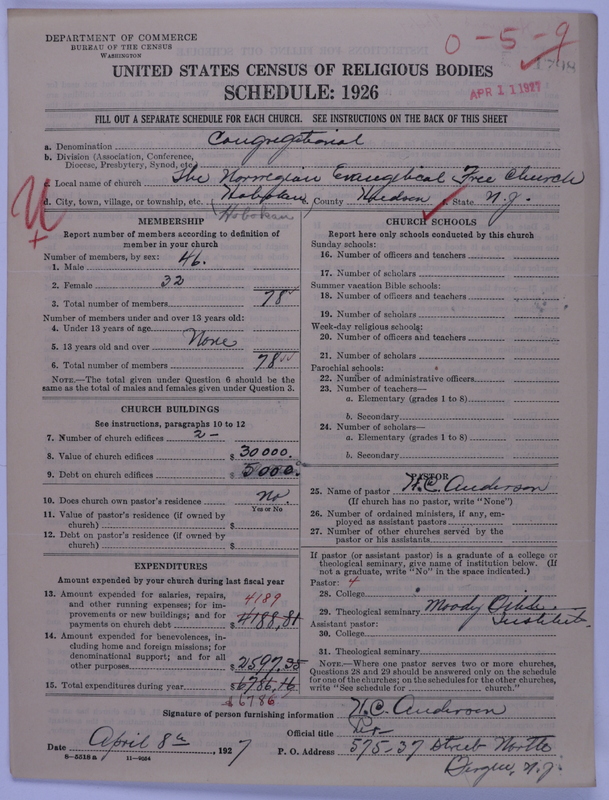 DEPARTMENT OF COMMERCE
BUREAU OF THE CENSUS
WASHINGTON
0-5-9
APR 11 1927
UNITED STATES CENSUS OF RELIGIOUS BODIES
SCHEDULE: 1926
FILL OUT A SEPARATE SCHEDULE FOR EACH CHURCH. SEE INSTRUCTIONS ON THE BACK OF THIS SHEET
a. Denomination Congregational
b. Division (Association, Conference, Diocese, Presbytery, Synod, etc.
c. Local name of church The Norwegian Evangelical Free Church
d. City, town, village, or township, etc. Hoboken County Hudson State N.J.
Hoboken
MEMBERSHIP
Report number of members according to definition of
member in your church
Number of members, by sex:
1. Male 46.
2. Female 32
3. Total number of members 78
Number of members under and over 13 years old:
4. Under 13 years of age
5. 13 years old and over None
6. Total number of members 78
NOTE.—The total given under Question 6 should be
same as the total of males and females given under Question 3.
CHURCH BUILDINGS
See instructions, paragraphs 10 to 12
7. Number of church edifices 2-
8. Value of church edifices $ 30000.
9. Debt on church edifices $ 5000.
10. Does church own pastor's residence No.
Yes or No
11. Value of pastor's residence (if owned by
church) $
12. Debt on pastor's residence (if owned by
church) $
EXPENDITURES
Amount expended by your church during last fiscal year
13. Amount expended for salaries, repairs,
and other running expenses; for im-
provements or new buildings; and for
payments on church debt $ 4188,81
4189
14. Amount expended for benevolences, in-
cluding home and foreign missions; for
denominational support; and for all
other purposes $ 2597.35
15. Total expenditures during year $ 6786,16
$6786
CHURCH SCHOOLS
Report here only schools conducted by this church
Sunday schools:
16. Number of officers and teachers
17. Number of scholars
Summer vacation Bible schools:
18. Number of officers and teachers
19. Number of scholars
Week-day religious schools:
20. Number of officers and teachers
21. Number of scholars
Parochial schools:
22. Number of administrative officers
23. Number of teachers—
a. Elementary (grades 1 to 8)
b. Secondary
24. Number of scholars—
a. Elementary (grades 1 to 8)
b. Secondary
PASTOR
25. Name of pastor H.C. Anderson
(If church has no pastor, write "None")
26. Number of ordained ministers, if any, em-
ployed as assistant pastors
27. Number of other churches served by the
pastor or his assistants
If pastor (or assistant pastor) is a graduate of a college or
theological seminary, give name of institution below. (If
not a graduate, write "No" in the space indicated.)
Pastor: 4
28. College
29. Theological seminary Moody Bible
Institute
Assistant pastor:
30. College
31. Theological seminary
NOTE.—Where one pastor serves two or more churches,
Questions 28 and 29 should be answered only on the schedule
for one of the churches; on the schedules for the other churches,
write "See schedule for church."
Signature of person furnishing information H.C. Anderson
Official title
Date April 8th, 1927
P. O. Address 575-37 Street North
Bergen, N.J.
8—5318 a